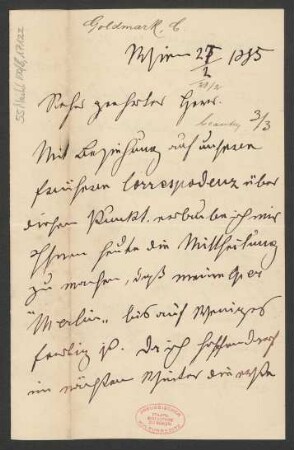 Goldmark, C
Wien 27/2 1885
28/2
Sehr geehrter Herr.
beantw 3/3
Mit Beziehung auf unsere
frühere Correspodenz über
diesen Punkt, erlaube ich mir
Ihnen heute die Mittheilung
zu machen, daß meine Oper
"Merlin" bis auf Weniges
fertig ist. Da ich hoffe
im nächsten Winter die erste